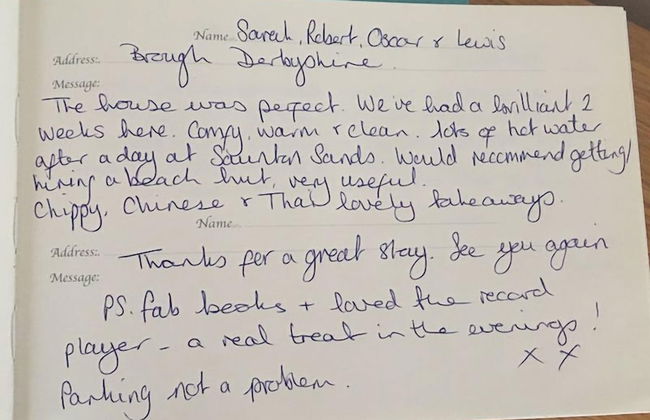 Name Sarah, Robert, Oscar & Lewis
Address: Brough Derbyshire.
Message:
The house was perfect. We've had a brilliant 2
weeks here. Comfy, warm & clean. lots of hot water
after a day at Saunton Sands. Would recommend getting/
hiring a beach hut, very useful.
Chippy, Chinese & Thai lovely takeaways.
Name
Address: Thanks for a great stay. See you again
Message:
PS. fab books + loved the record
player - a real treat in the evenings!
x x
Parking not a problem.